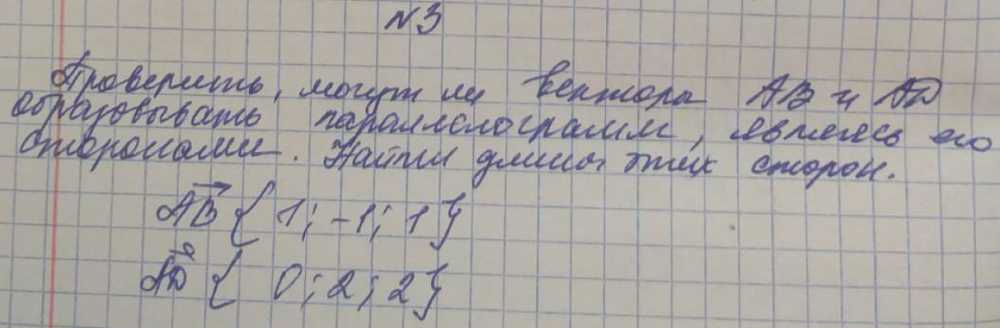 №3
Проверить, могут ли вектора AB и AD
образовывать параллелограмм, являясь его
сторонами. Найти длины этих сторон.
AB { 1; -1; 1 }
AD { 0; 2; 2 }